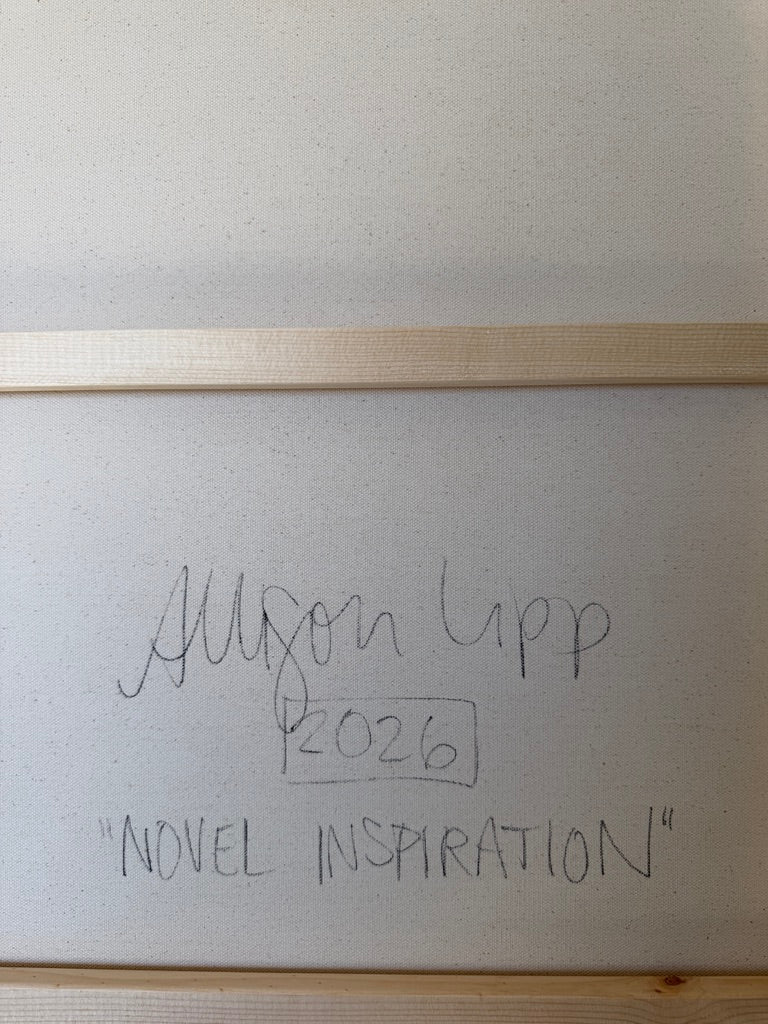 Allison Lipp
2026
"NOVEL INSPIRATION"